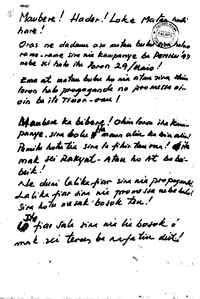 Maubere! Hader! Loke Matan hodi
hare!
Oras ne dadaun asu matan bubu sira halao
rame-rame sira nia kampanye ba Pemilu '97
nebe sei halo iha loron 29/Maio!
Ema at matan bubu ho nia atan sira, ohin
loron halo propaganda no promessa oi-
oin ba ita Timor-oan!
Maubere ka biberes! Ohin loron iha Kam-
panye, sira bolu ita maun alin ka bin alin!
Pemilu hotu tia sira la fihir tan ona! Ita
mak sei Rakyat-Atan ho At ba bei-
beik!
Ne duni lalika fiar sira nia propaganda
Lalika fiar sira nia promessa nebe halo!
Sira hotu oi sak bosok ten!
Ita fiar sala sira nia lia bosok ó
mak sei terus ba nafatin deit!